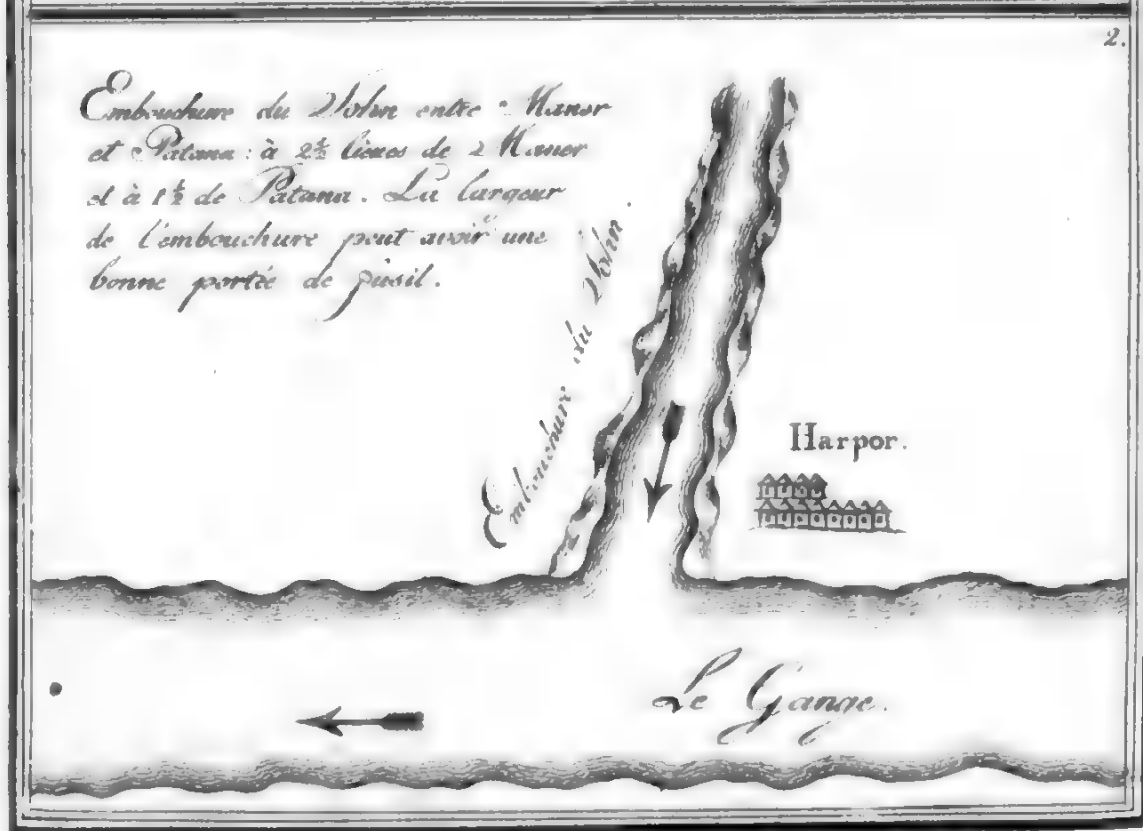 2.
Embouchure du Sohn entre Maner
et Patana: à 2½ lieues de Maner
et à 1½ de Patana. La largeur
de l'embouchure peut avoir une
bonne portée de fusil.
Embouchure du Sohn.
Harpor.
Le Gange.